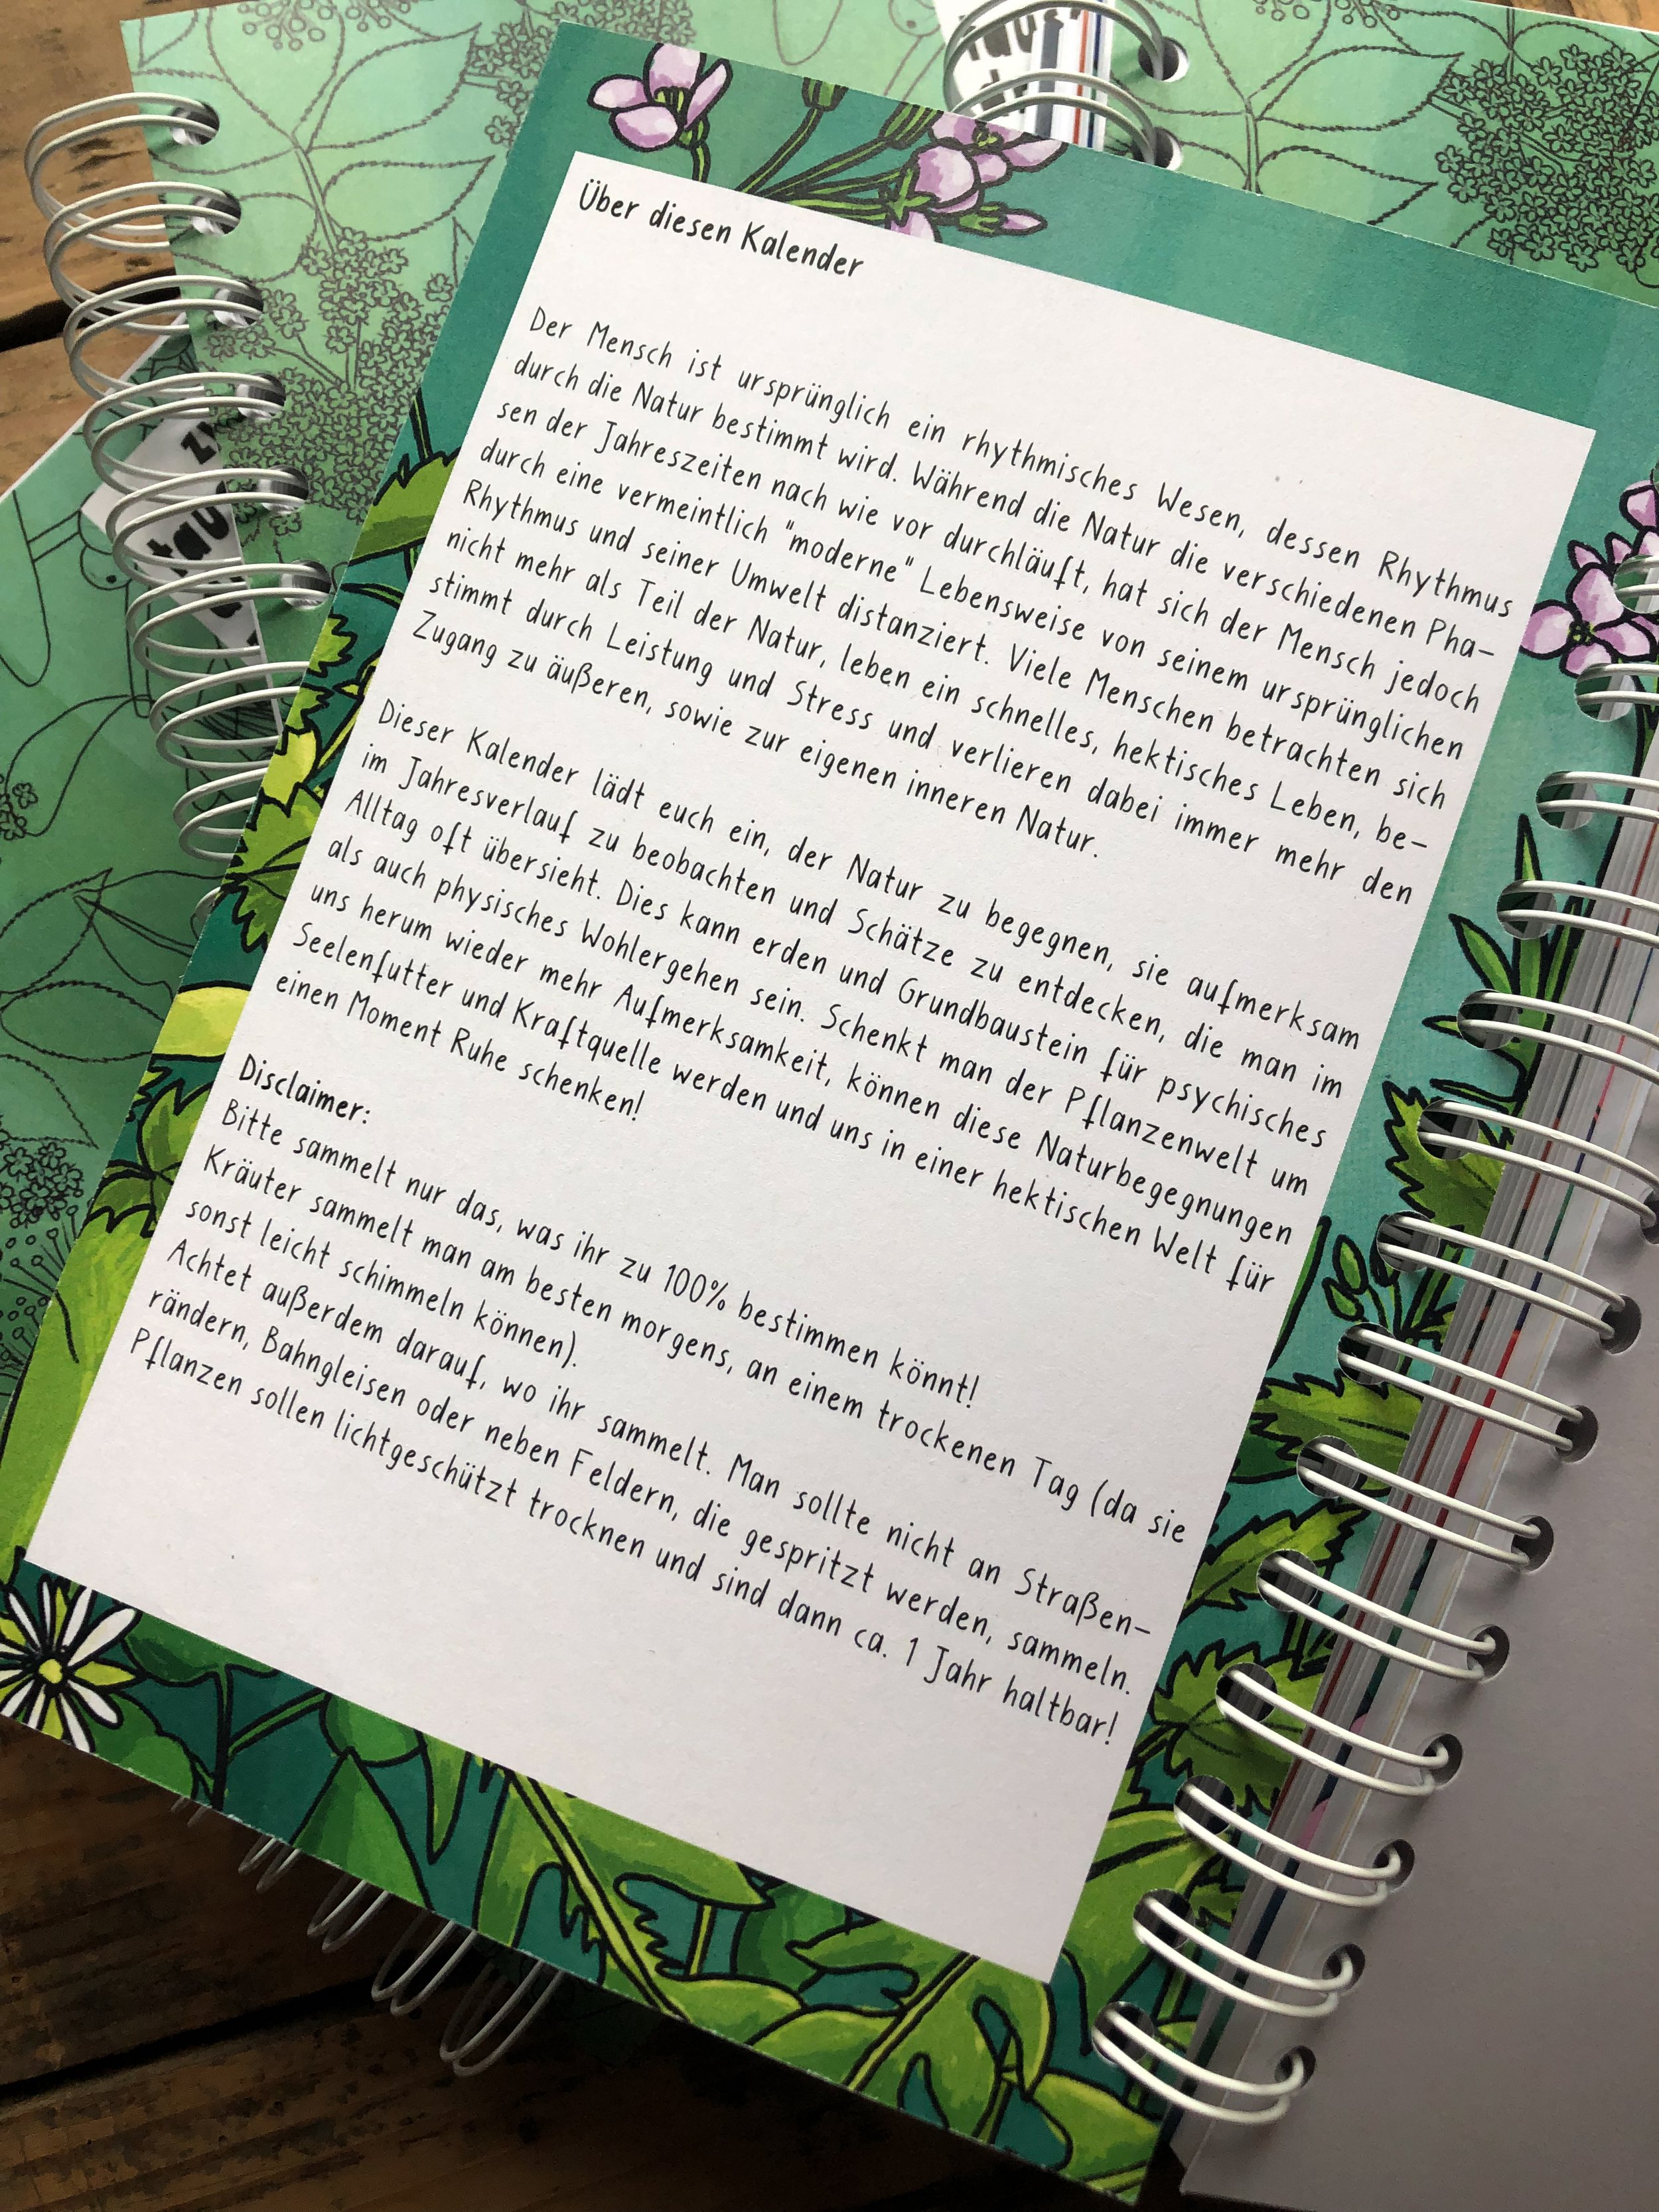 Über diesen Kalender
Der Mensch ist ursprünglich ein rhythmisches Wesen, dessen Rhythmus
durch die Natur bestimmt wird. Während die Natur die verschiedenen Pha-
sen der Jahreszeiten nach wie vor durchläuft, hat sich der Mensch jedoch
durch eine vermeintlich "moderne" Lebensweise von seinem ursprünglichen
Rhythmus und seiner Umwelt distanziert. Viele Menschen betrachten sich
nicht mehr als Teil der Natur, leben ein schnelles, hektisches Leben, be-
stimmt durch Leistung und Stress und verlieren dabei immer mehr den
Zugang zu äußeren, sowie zur eigenen inneren Natur.
Dieser Kalender lädt euch ein, der Natur zu begegnen, sie aufmerksam
im Jahresverlauf zu beobachten und Schätze zu entdecken, die man im
Alltag oft übersieht. Dies kann erden und Grundbaustein für psychisches
als auch physisches Wohlergehen sein. Schenkt man der Pflanzenwelt um
uns herum wieder mehr Aufmerksamkeit, können diese Naturbegegnungen
Seelenfutter und Kraftquelle werden und uns in einer hektischen Welt für
einen Moment Ruhe schenken!
Disclaimer:
Bitte sammelt nur das, was ihr zu 100% bestimmen könnt!
Kräuter sammelt man am besten morgens, an einem trockenen Tag (da sie
sonst leicht schimmeln können).
Achtet außerdem darauf, wo ihr sammelt. Man sollte nicht an Straßen-
rändern, Bahngleisen oder neben Feldern, die gespritzt werden, sammeln.
Pflanzen sollen lichtgeschützt trocknen und sind dann ca. 1 Jahr haltbar!